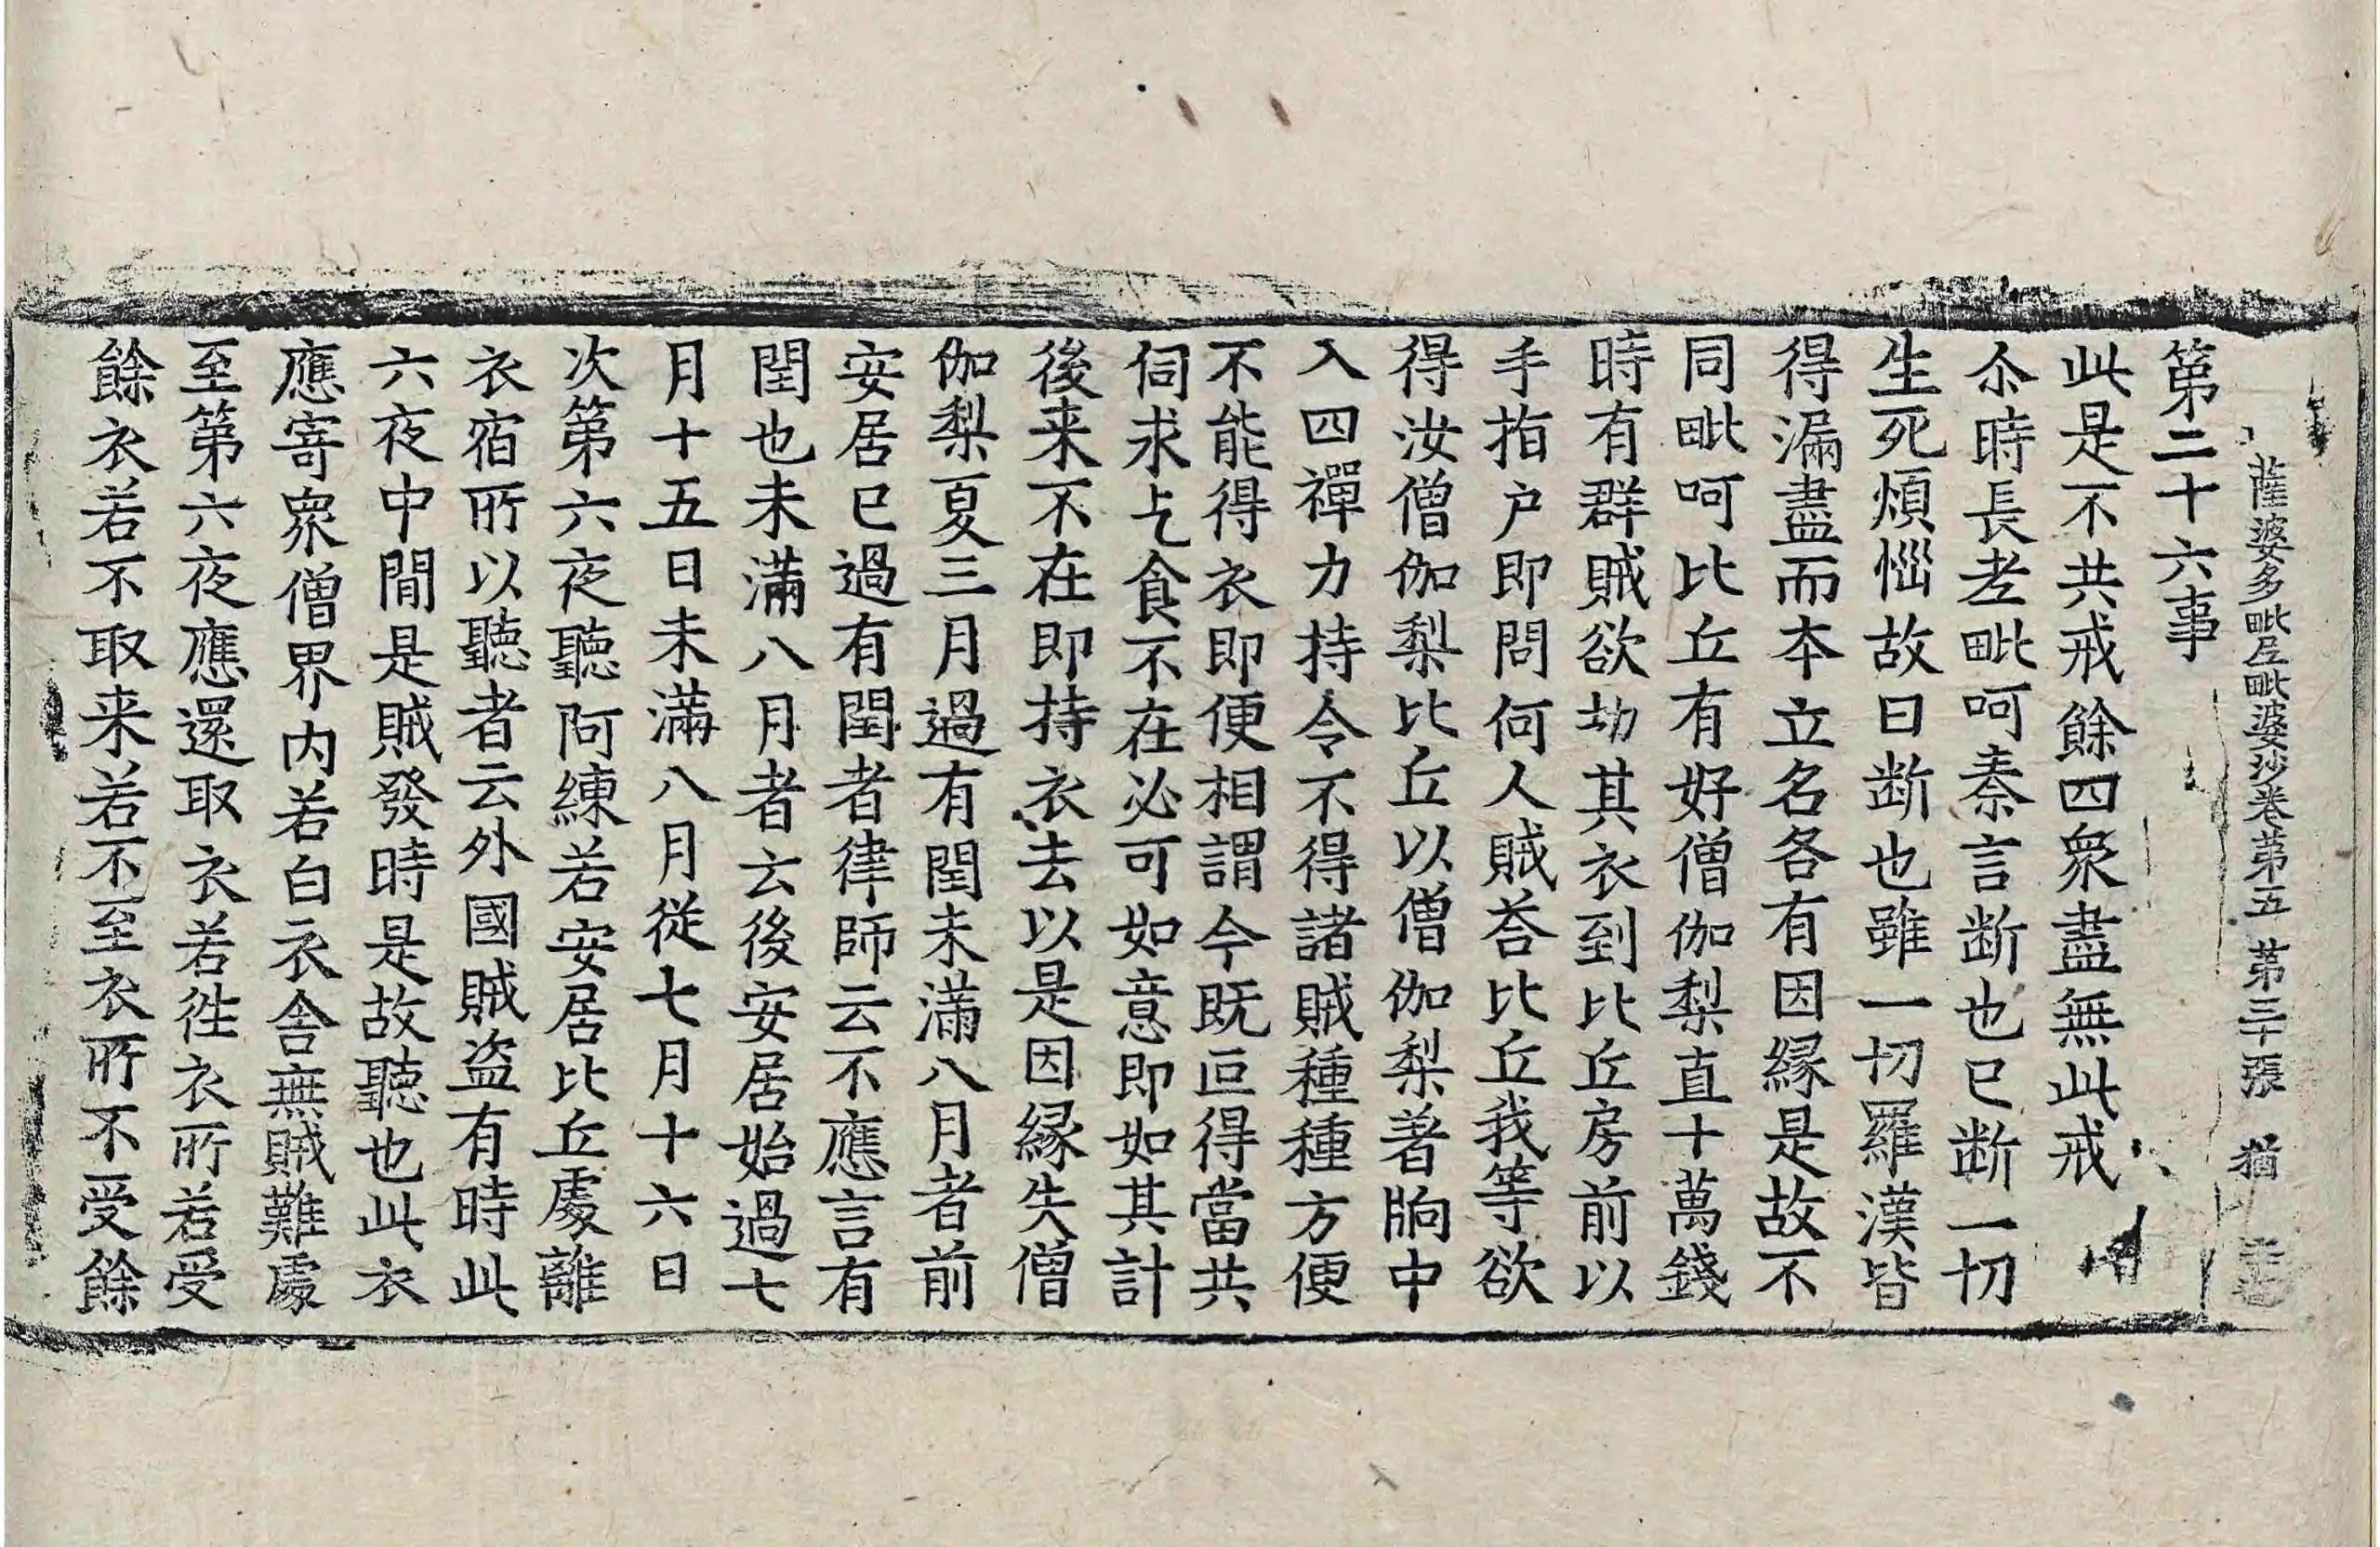 薩婆多毗尼毗婆沙卷第五 第三十張 猶
第二十六事
此是不共戒餘四衆盡無此戒
尒時長老毗呵秦言断也已断一切
生死煩惱故曰断也雖一切羅漢皆
得漏盡而夲立名各有因緣是故不
同毗呵比丘有好僧伽梨直十萬錢
時有群賊欲劫其衣到比丘房前以
手指户即問何人賊荅比丘我等欲
得汝僧伽梨比丘以僧伽梨著胷中
入四禪力持令不得諸賊種種方便
不能得衣即便相謂今既叵得當共
伺求乞食不在必可如意即如其計
後来不在即持衣去以是因緣失僧
伽梨夏三月過有閏未滿八月者前
安居已過有閏者律師云不應言有
閏也未滿八月者云後安居始過七
月十五日未滿八月從七月十六日
次第六夜聽阿練若安居比丘處離
衣宿所以聽者云外國賊盗有時此
六夜中間是賊發時是故聽也此衣
應寄衆僧界内若白衣舍無賊難處
至第六夜應還取衣若徃衣所若受
餘衣若不取来若不至衣所不受餘